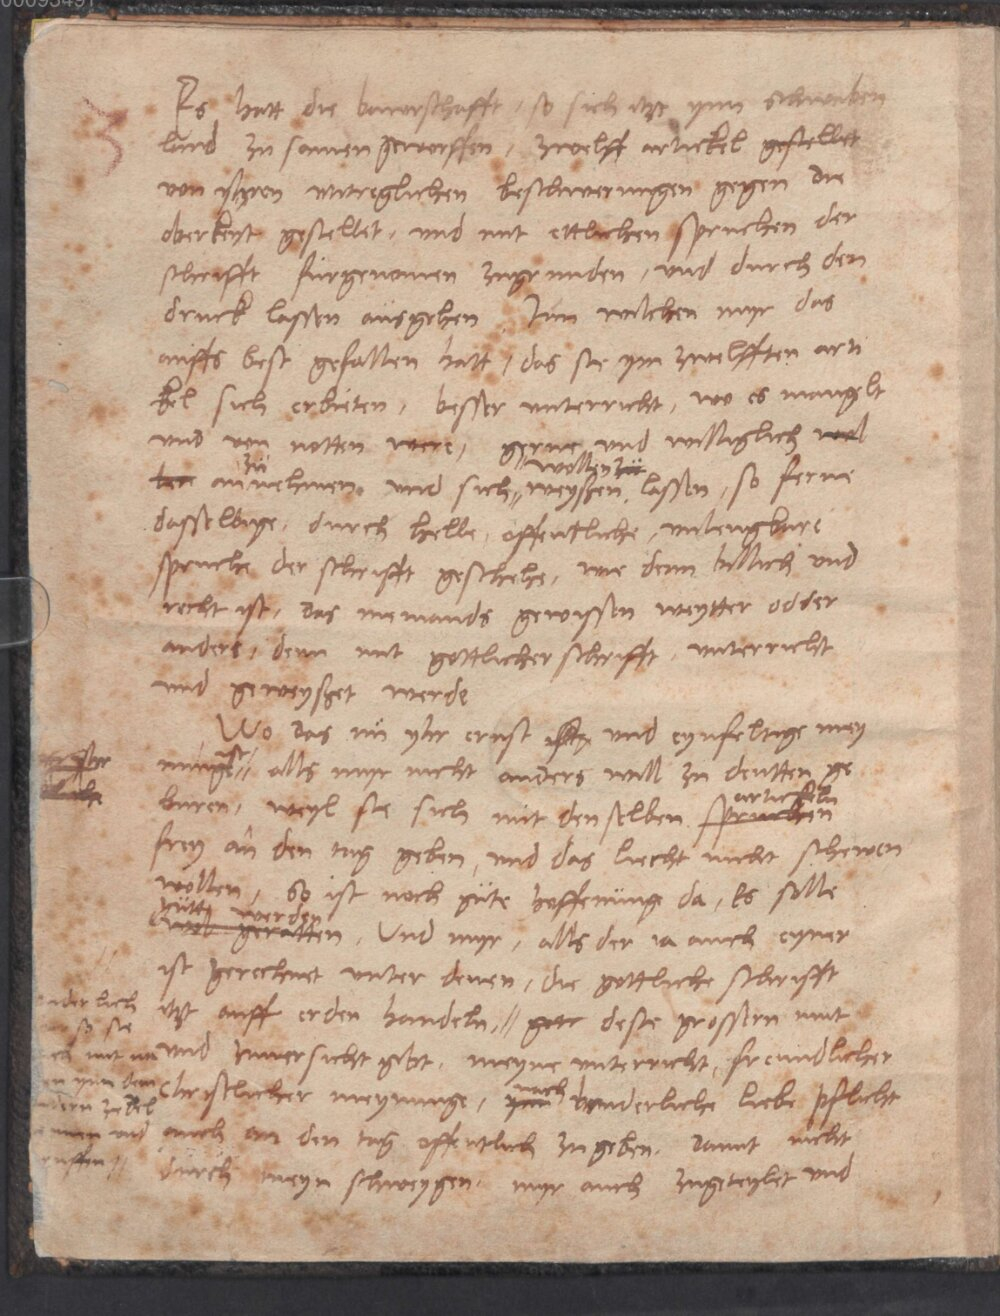 00093497
3
Es hatt die bawrschafft, so sich itzt ynn schwaben
land zu samen geworffen, zwelff artickel gestellet
von yhren vntreglichen beschwerungen gegen die
oberkeyt gestellet, vnd mit ettlichen spruchen der
schrifft furgenomen zugrunden, vnd durch den
druck lassen ausgehen, Inn wilchen myr das
auffs best gefallen hatt, das sie ym zwelfften arti
kel sich erbieten, besser vnterricht, wo es mangelt
vnd von notten were, gerne vnd williglich wol
len zu an nehmen vnd sich wollen zu weysen lassen, so ferne
dasselbige, durch helle, offentliche, vnleugbare
spruche der schrifft geschehe, wie denn billich vnd
recht ist, das niemands gewissen weytter odder
anders, denn mit gottlicher schrifft, vnterricht
vnd geweyset werde
Wo das nu yhr ernst ist, vnd eynfeltige mey
nunge ist, alls myr nicht anders will zu deutten ge
buren, weyl sie sich mit denselben artickeln spruchen
frey an den tag geben, vnd das liecht nicht schewen
wollen, So ist noch gute hoffenunge da, Es solle
gutt werden
wol geratten, Vnd myr, alls der ia auch eyner
ist gerechnet vnter denen, die gottliche schrifft
itzt auff erden handeln, gar deste grossern mut
vnd zuuersicht gibt, meyne vnterricht, freundlicher
christlicher meynunge, ynn nach bruderliche liebe pflicht
auch an den tag offentlich zu geben, damit nicht
durch meyn schweygen, myr auch zugeteylet vnd
nderlich
so sie
mit na
ynn dem
dern zedel
nnen vnd
ruffen